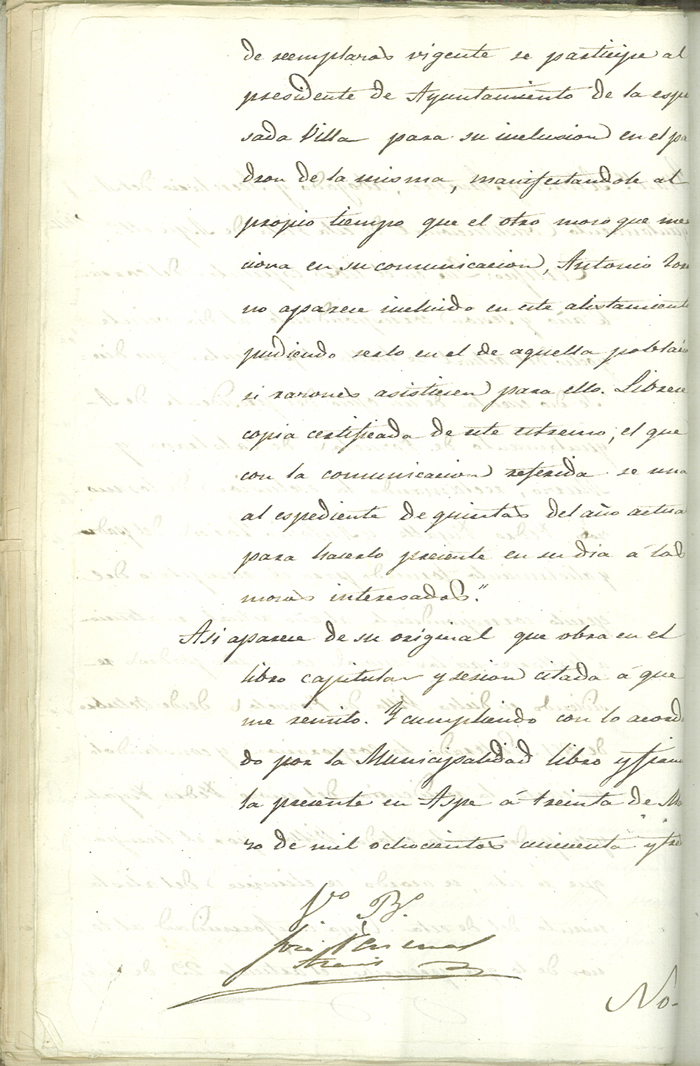 de reemplazos vigente se participe al
presidente de Ayuntamiento de la espre
sada Villa para su inclusion en el pa
dron de la misma, manifestandole al
propio tiempo que el otro mozo que men
ciona en su comunicacion, Antonio
no aparece incluido en este alistamiento
pudiendo serlo en el de aquella poblacion
si razones asistiesen para ello. Librese
copia certificada de este estremo, el que
con la comunicacion referida se una
al espediente de quintas del año actual
para hacerlo presente en su dia á los
mozos interesados."
Asi aparece de su original que obra en el
libro capitular y sesion citada á que
me remito. Y cumpliendo con lo acorda
do por la Municipalidad libro y firmo
la presente en Aspe á treinta de Mar
zo de mil ochocientos cincuenta y tres
Vº Bº
José
No-